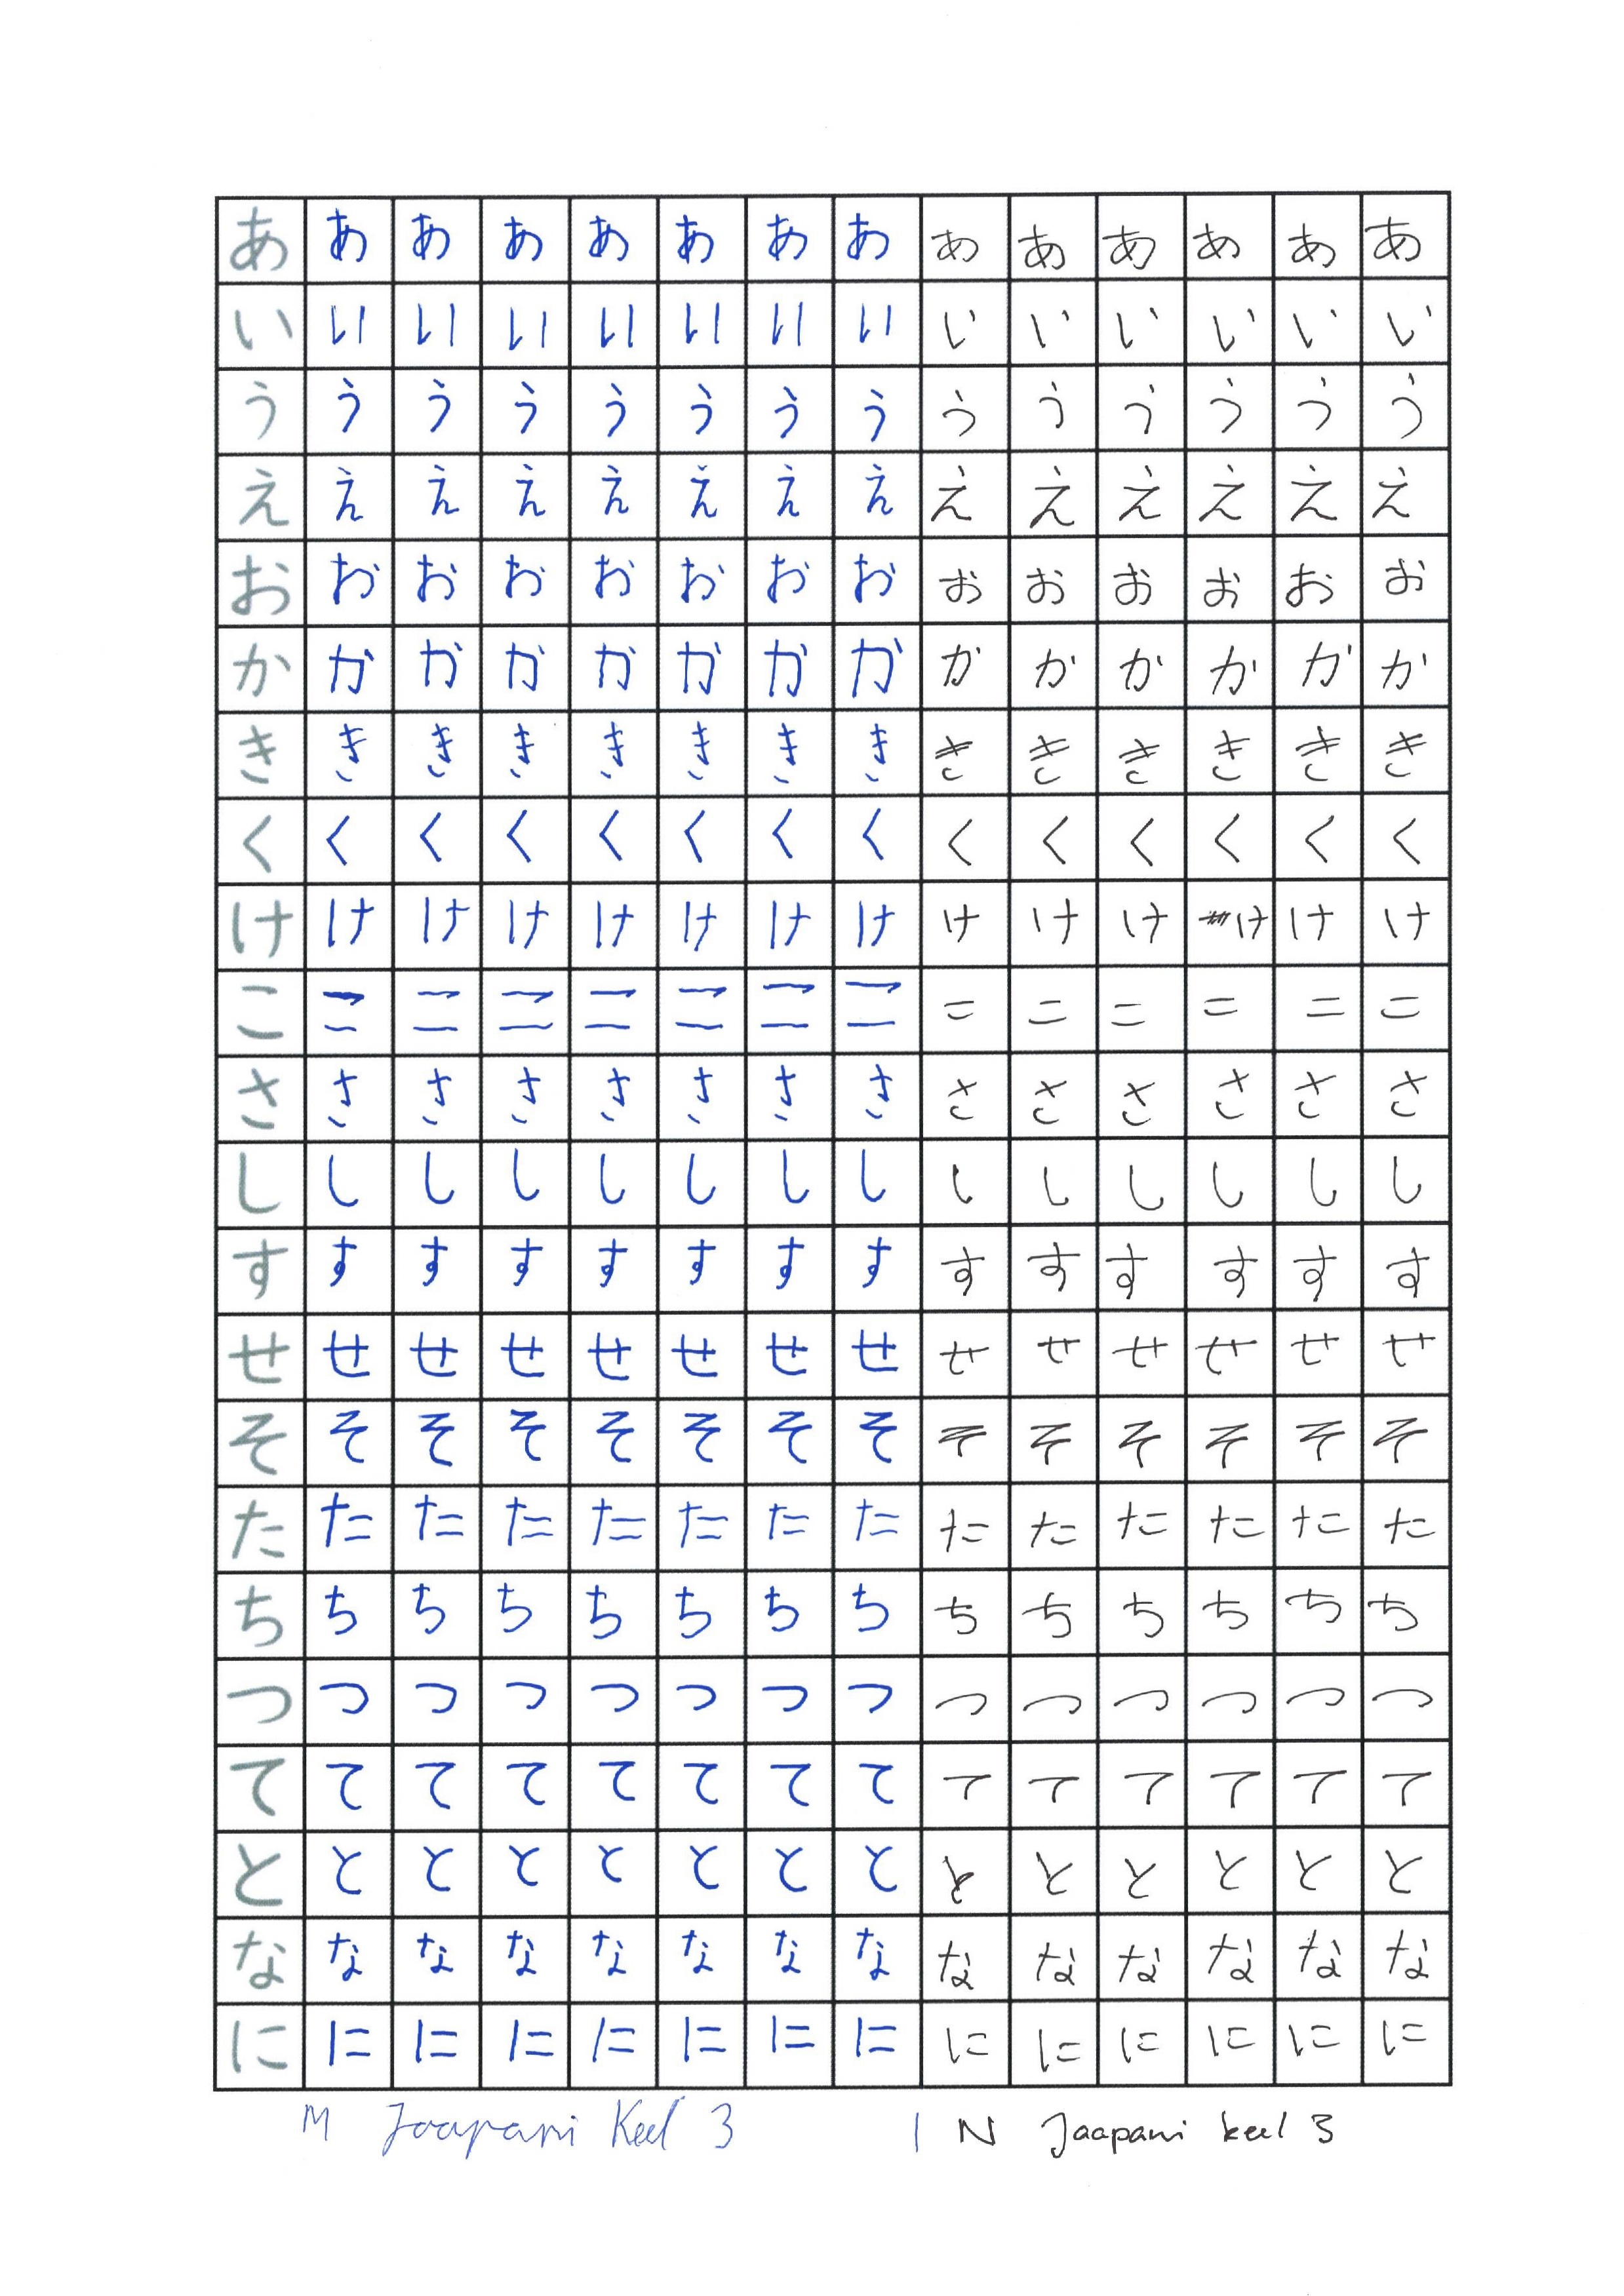 あ あ あ あ あ あ あ あ あ あ あ あ あ あ
い い い い い い い い い い い い い い
う う う う う う う う う う う う う う
え え え え え え え え え え え え え え
お お お お お お お お お お お お お お
か か か か か か か か か か か か か か
き き き き き き き き き き き き き き
く く く く く く く く く く く く く く
け け け け け け け け け け け け け け
こ こ こ こ こ こ こ こ こ こ こ こ こ こ
さ さ さ さ さ さ さ さ さ さ さ さ さ さ
し し し し し し し し し し し し し し
す す す す す す す す す す す す す す
せ せ せ せ せ せ せ せ せ せ せ せ せ せ
そ そ そ そ そ そ そ そ そ そ そ そ そ そ
た た た た た た た た た た た た た た
ち ち ち ち ち ち ち ち ち ち ち ち ち ち
つ つ つ つ つ つ つ つ つ つ つ つ つ つ
て て て て て て て て て て て て て て
と と と と と と と と と と と と と と
な な な な な な な な な な な な な な
に に に に に に に に に に に に に に
M Jaapani Keel 3 | N Jaapani keel 3